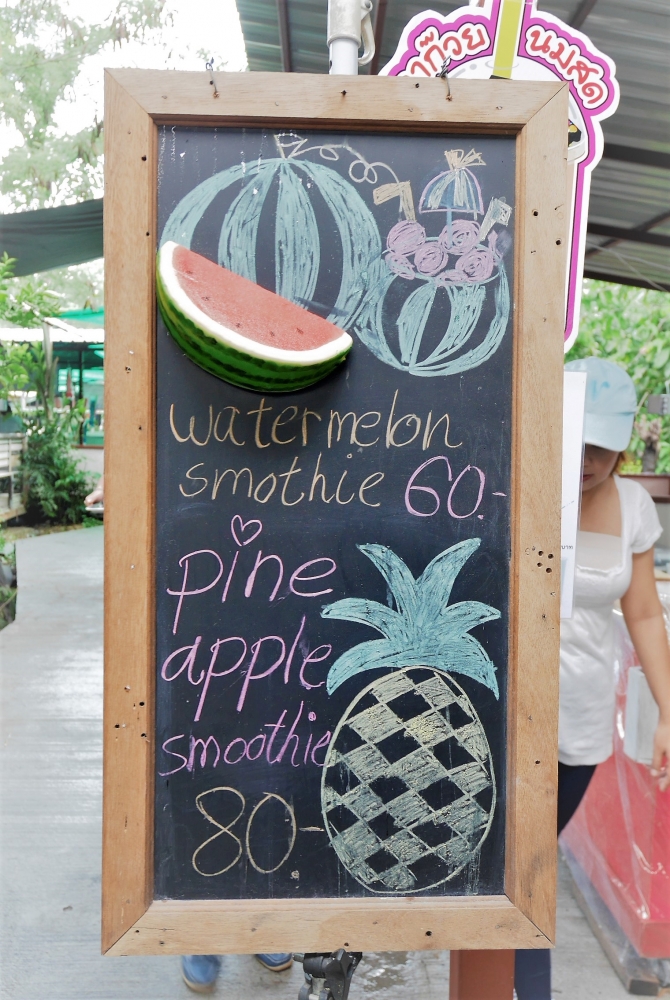 นมสด
watermelon
smothie 60.-
pine
apple
smoothie
80.-